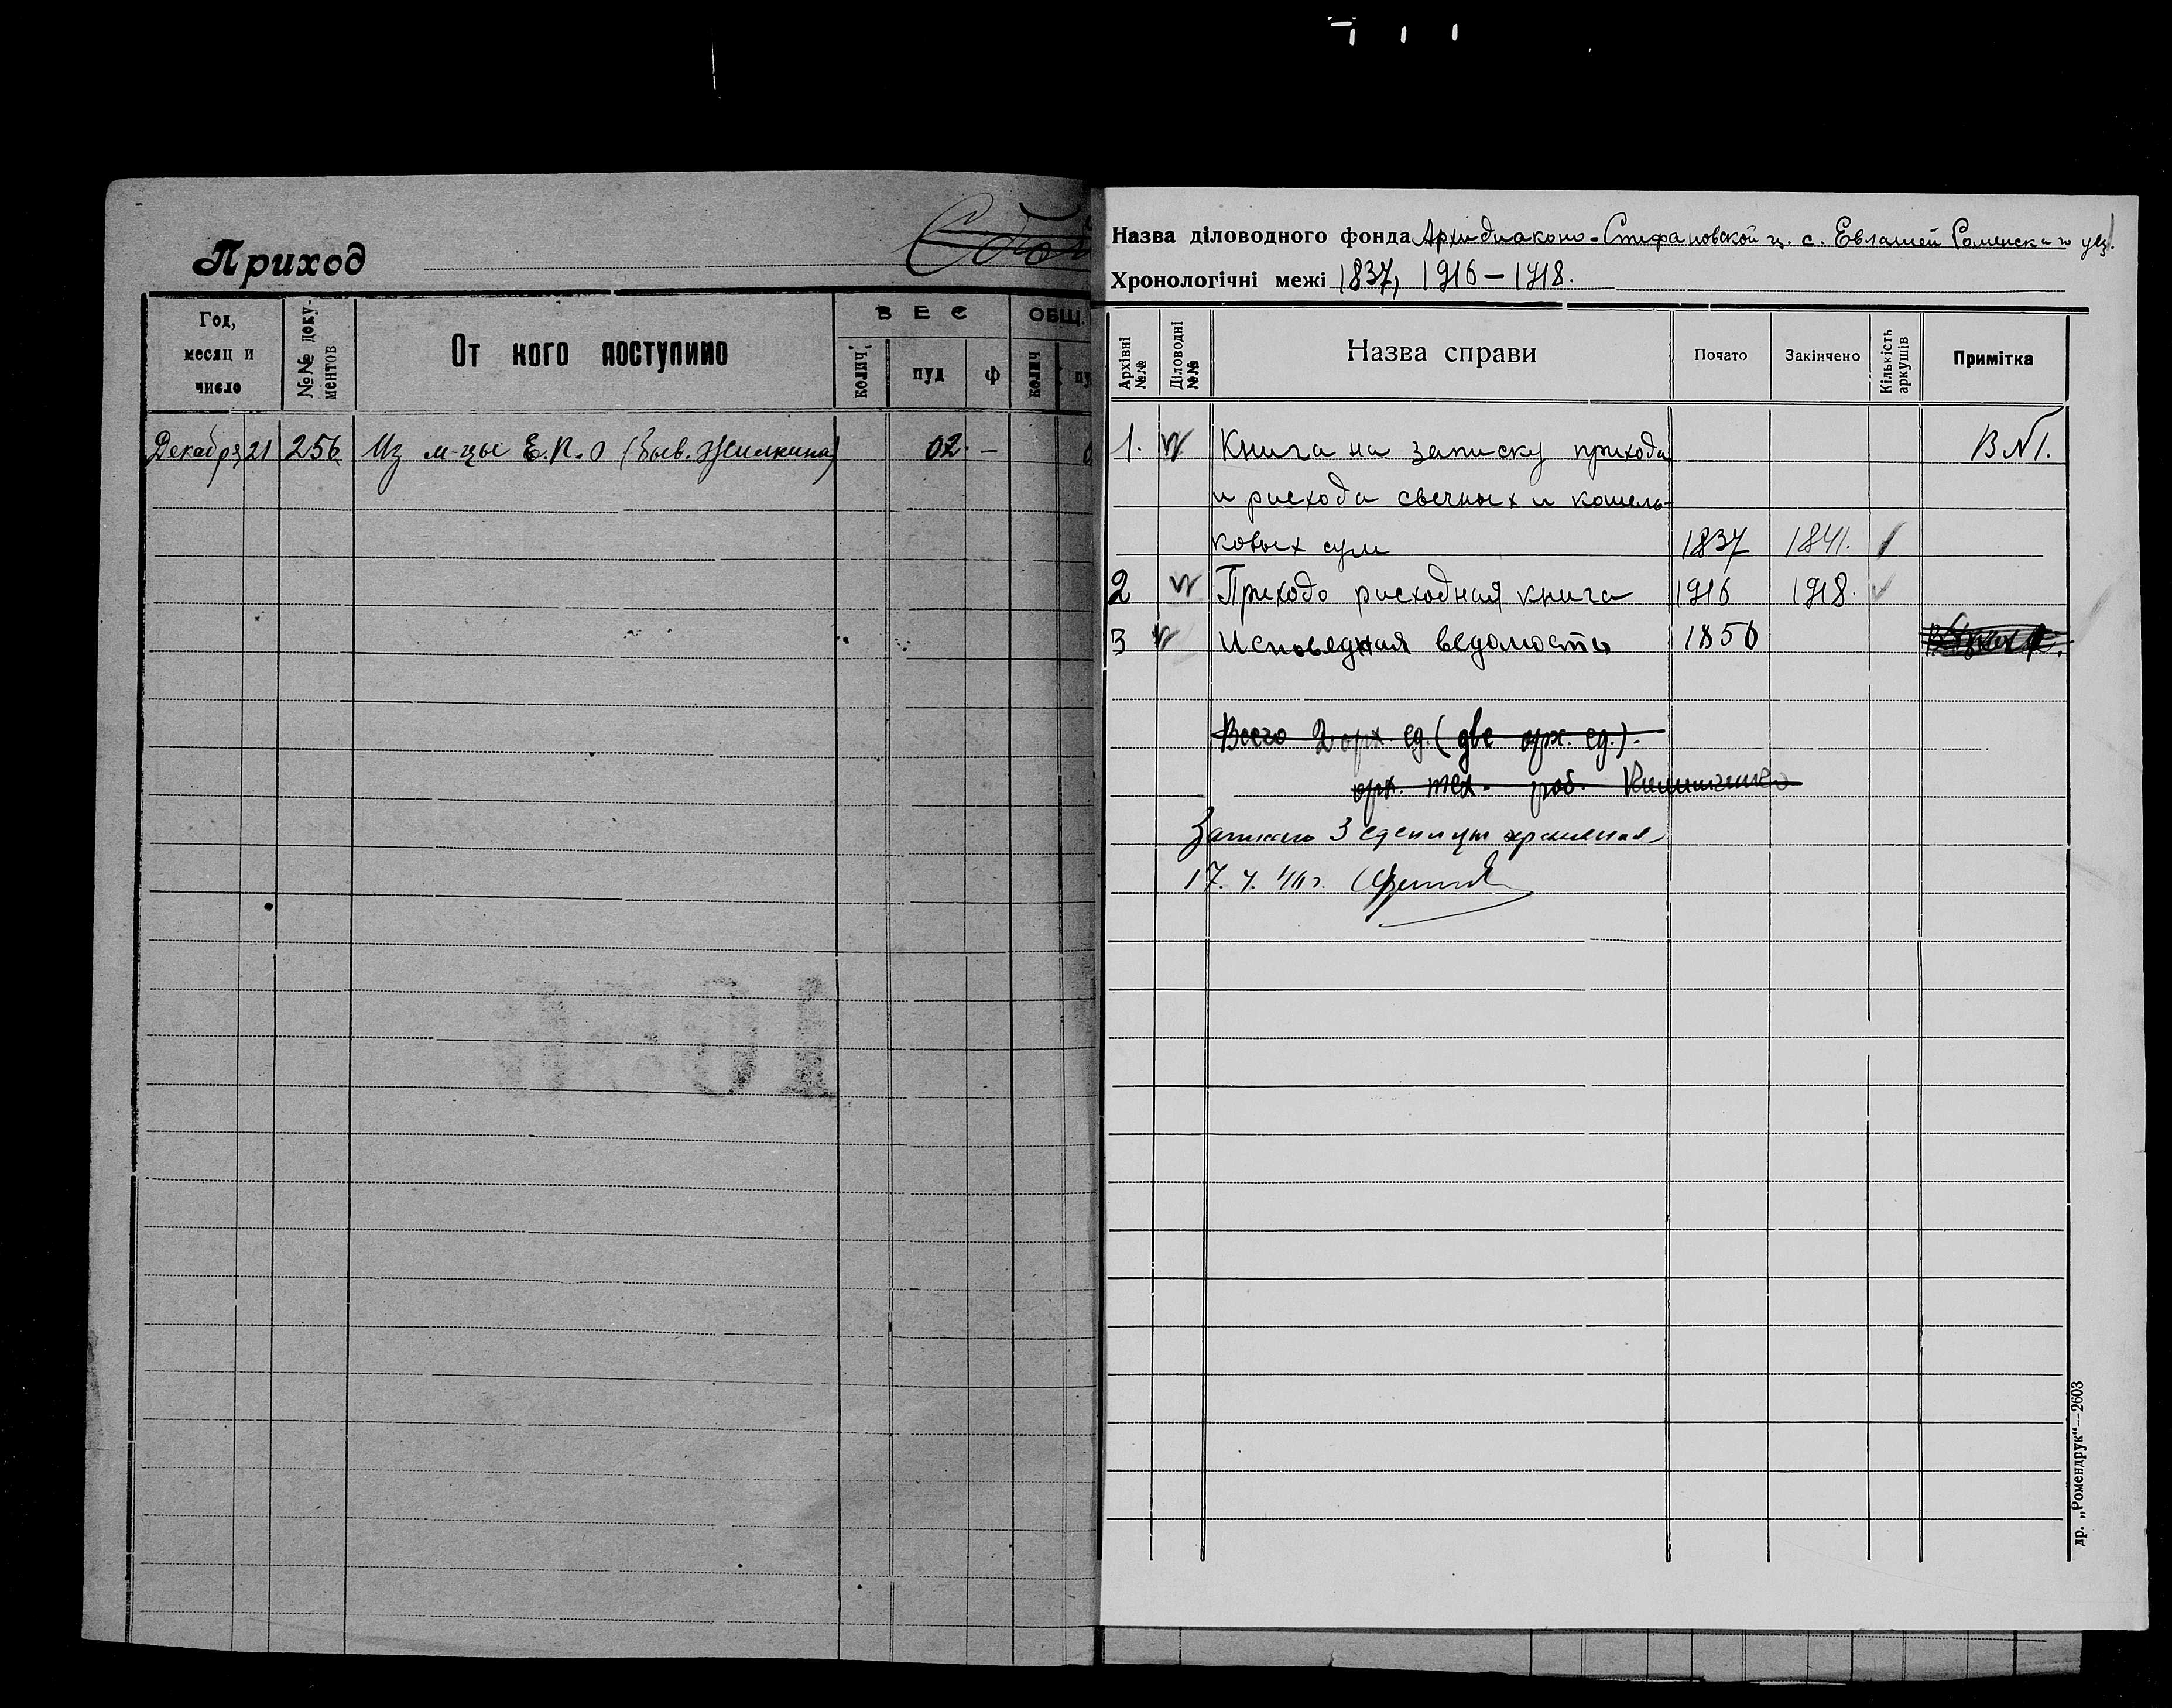 Приход
Год, месяц и число
№№ документов
От кого поступило
ВЕС
колич.
пуд
ф
ОБЩ.
колич
пу
Декабря 21 256 Из м-цы Е.П.О (быв. Жилкина) 02 —
Назва діловодного фонда Архидиаконо-Стефановской ц. с. Евлашей Роменского уез.
Хронологічні межі 1837, 1916 — 1918.
Архівні №№
Діловодні №№
Назва справи
Почато
Закінчено
Кількість аркушів
Примітка
1. Книга на записку прихода В №1.
и расхода свечных и кошель-
ковых сум 1837 1841.
2 Приходо расходная книга 1916 1918.
3 Исповедная ведомость 1856
Всего 2 арх. ед. (две арх. ед.).
арх. тех. роб.
3 единицы хранения
17.
др. „Ромендрук"—2603